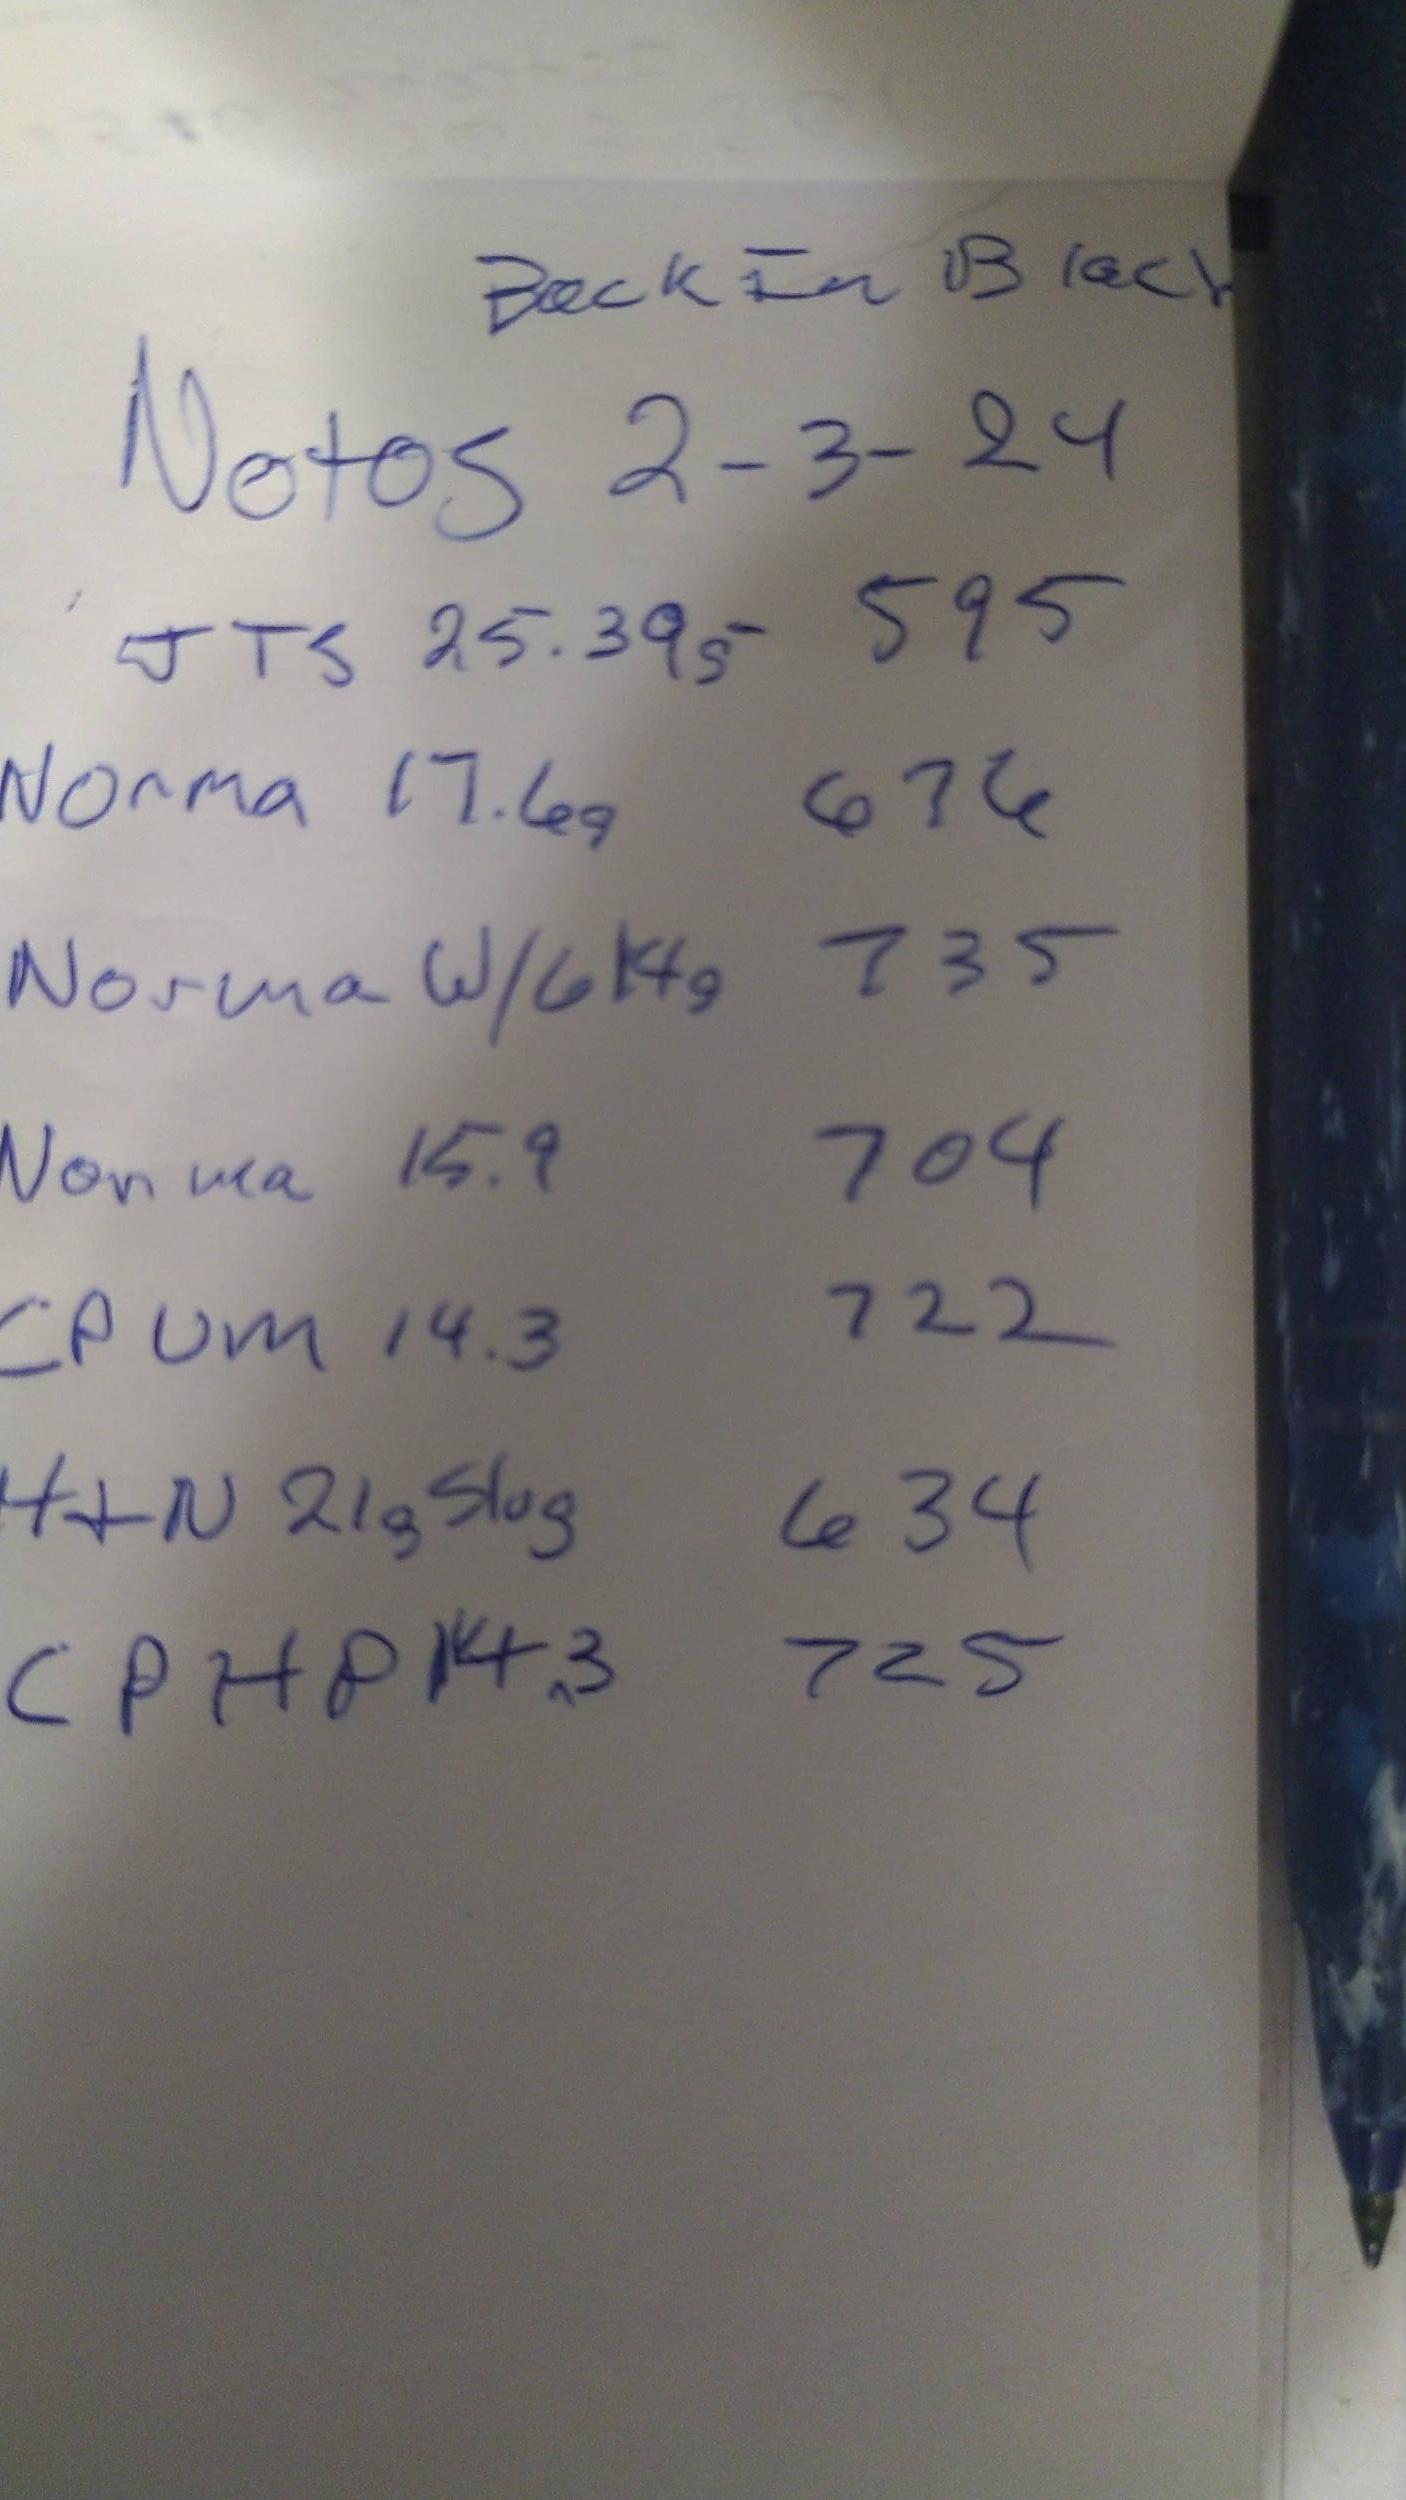 Back In Black
Notos 2-3-24
JTS 25.39g 595
Norma 17.6g 676
Norma W/6 14g 735
Norma 15.9 704
CPUM 14.3 722
H+N 21g Slug 634
CPHP 14.3 725